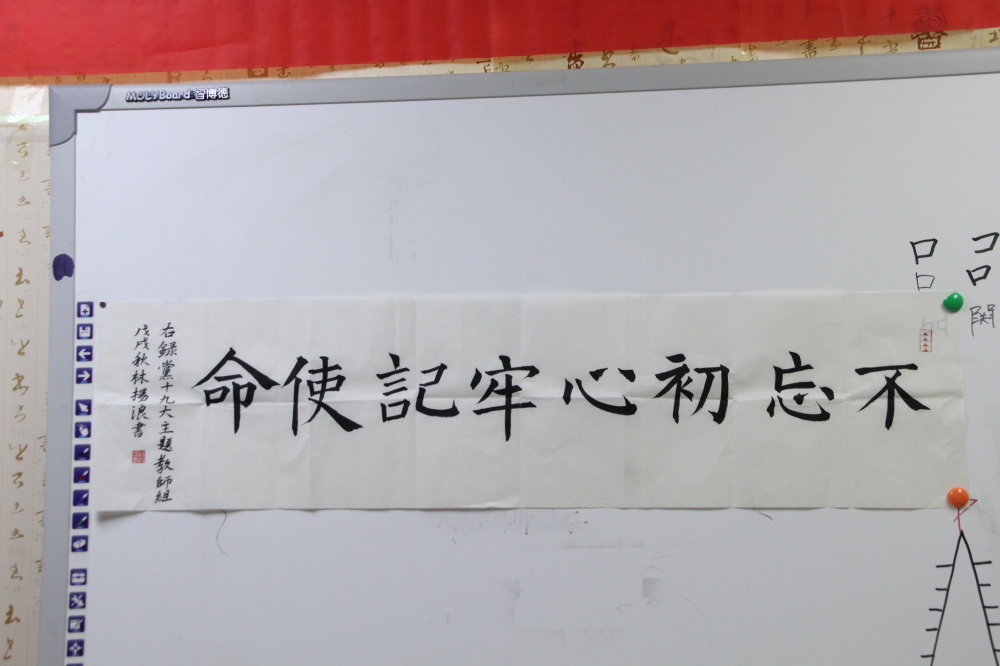 MOLYBoard 智博德
不忘初心牢記使命
右録黨十九大主題教師組
戊戌秋林揚浪書
口
口
コ口
関